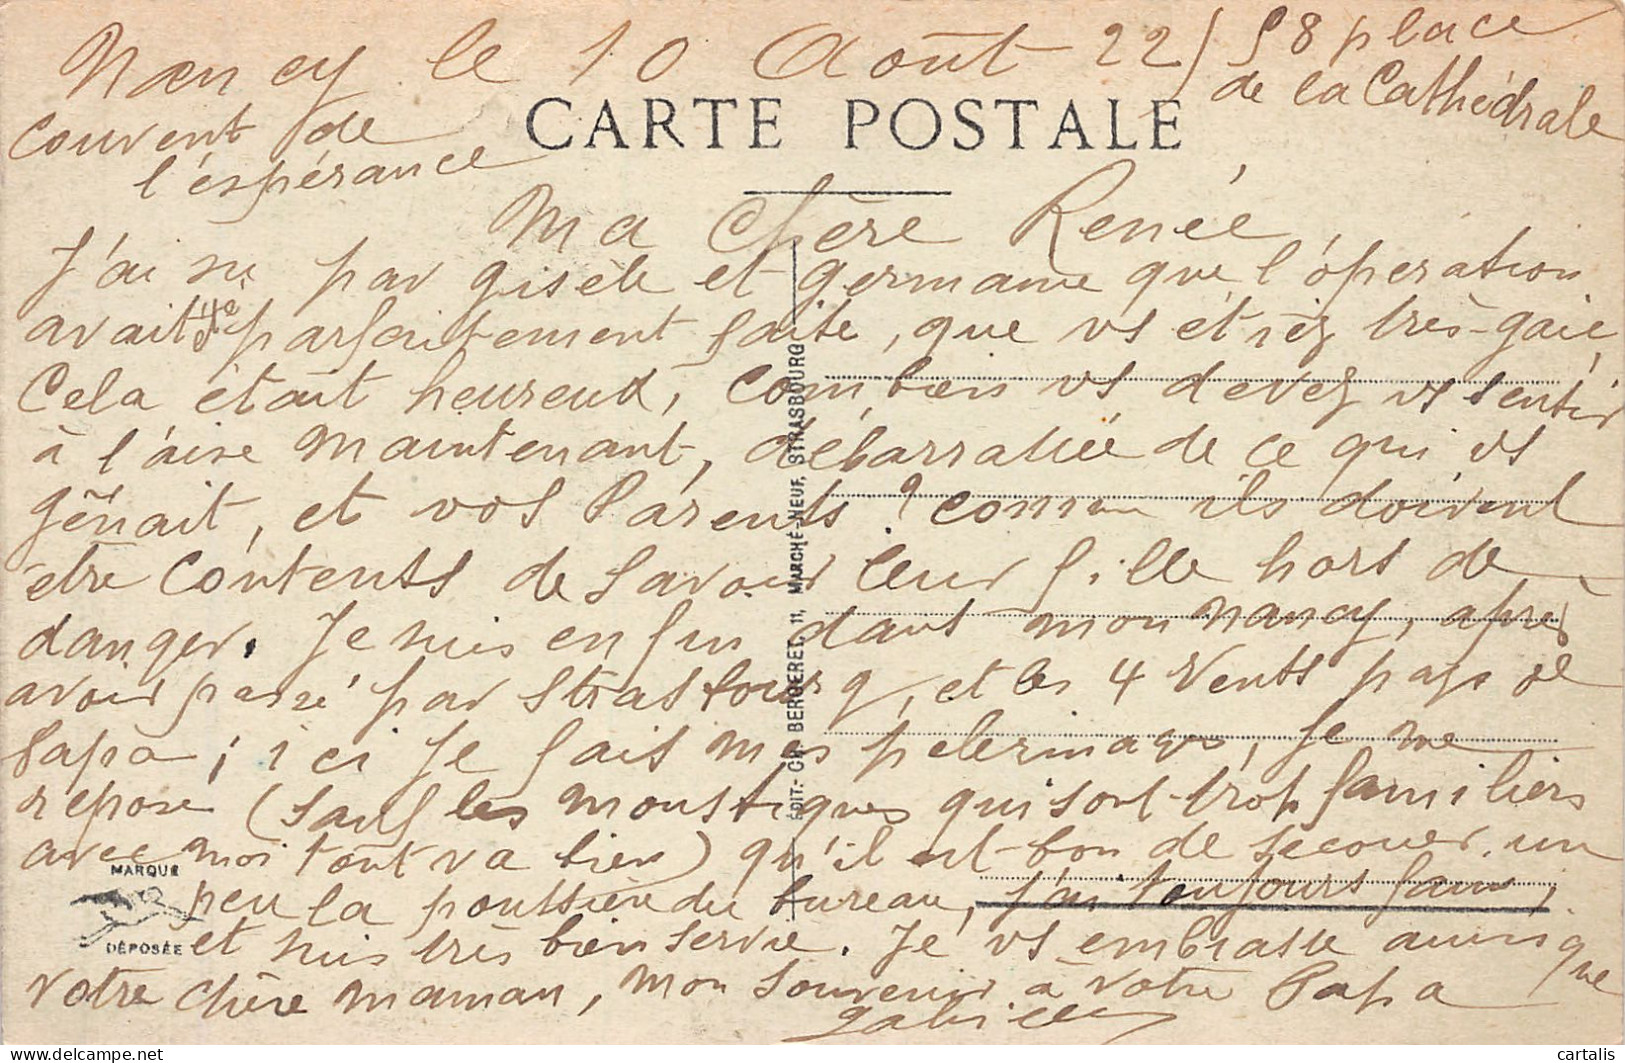 Nancy le 10 Août 22 / 58 place
de la Cathédrale
couvent de
l'éspérance
CARTE POSTALE
Ma Chère Renée,
J'ai su par gisèle et germaine que l'opération
avait été parfaitement faite, que vs étiez très-gaie,
Cela était heureux, combien vs devez vs sentir
à l'aise maintenant, débarrassée de ce qui vs
gênait, et vos Parents ? comme ils doivent
être Contents de savoir leur fille hors de
danger. Je suis enfin dans mon Nancy, après
avoir passé par Strasbourg, et les 4 Vents pays de
papa ; ici je fais mes pelerinages, je me
repose (sauf les moustiques qui sont trop familiers
avec moi tout va bien) qu'il est bon de secouer un
peu la poussière du bureau, j'ai toujours faim,
et suis très bien servie. Je vs embrasse ainsi que
votre chère maman, mon souvenir à votre Papa
EDIT.- CH. BERGERET, 11, MARCHÉ-NEUF, STRASBOURG
MARQUE
DÉPOSÉE
cartalis